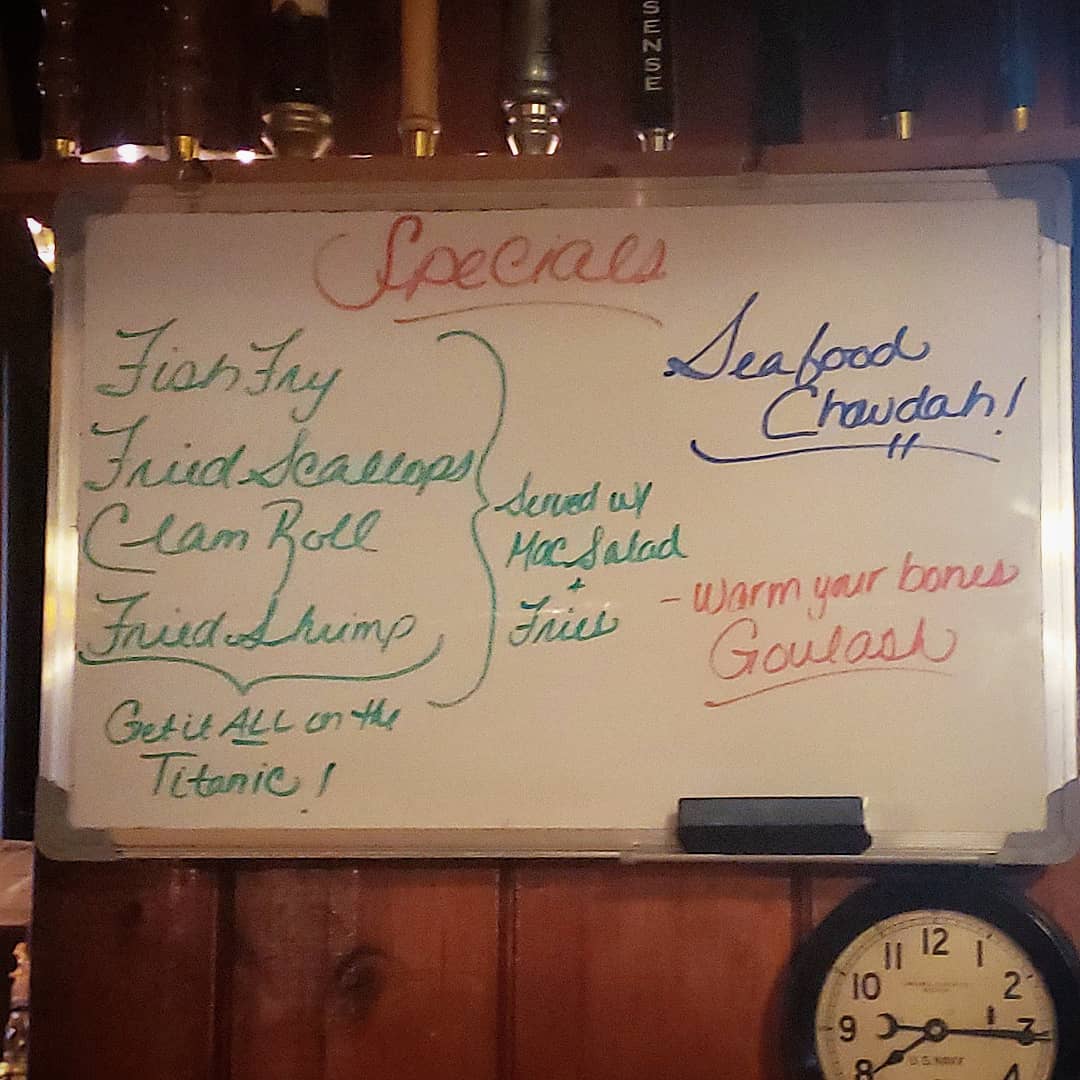 SENSE
Specials
Fish Fry
Fried Scallops
Clam Roll
Fried Shrimp
Get it ALL on the
Titanic!
Served w/
Mac Salad
+
Fries
Seafood
Chowdah!
- Warm your bones
Goulash
12
11 1
10 2
9 3
8 4
U.S. NAVY